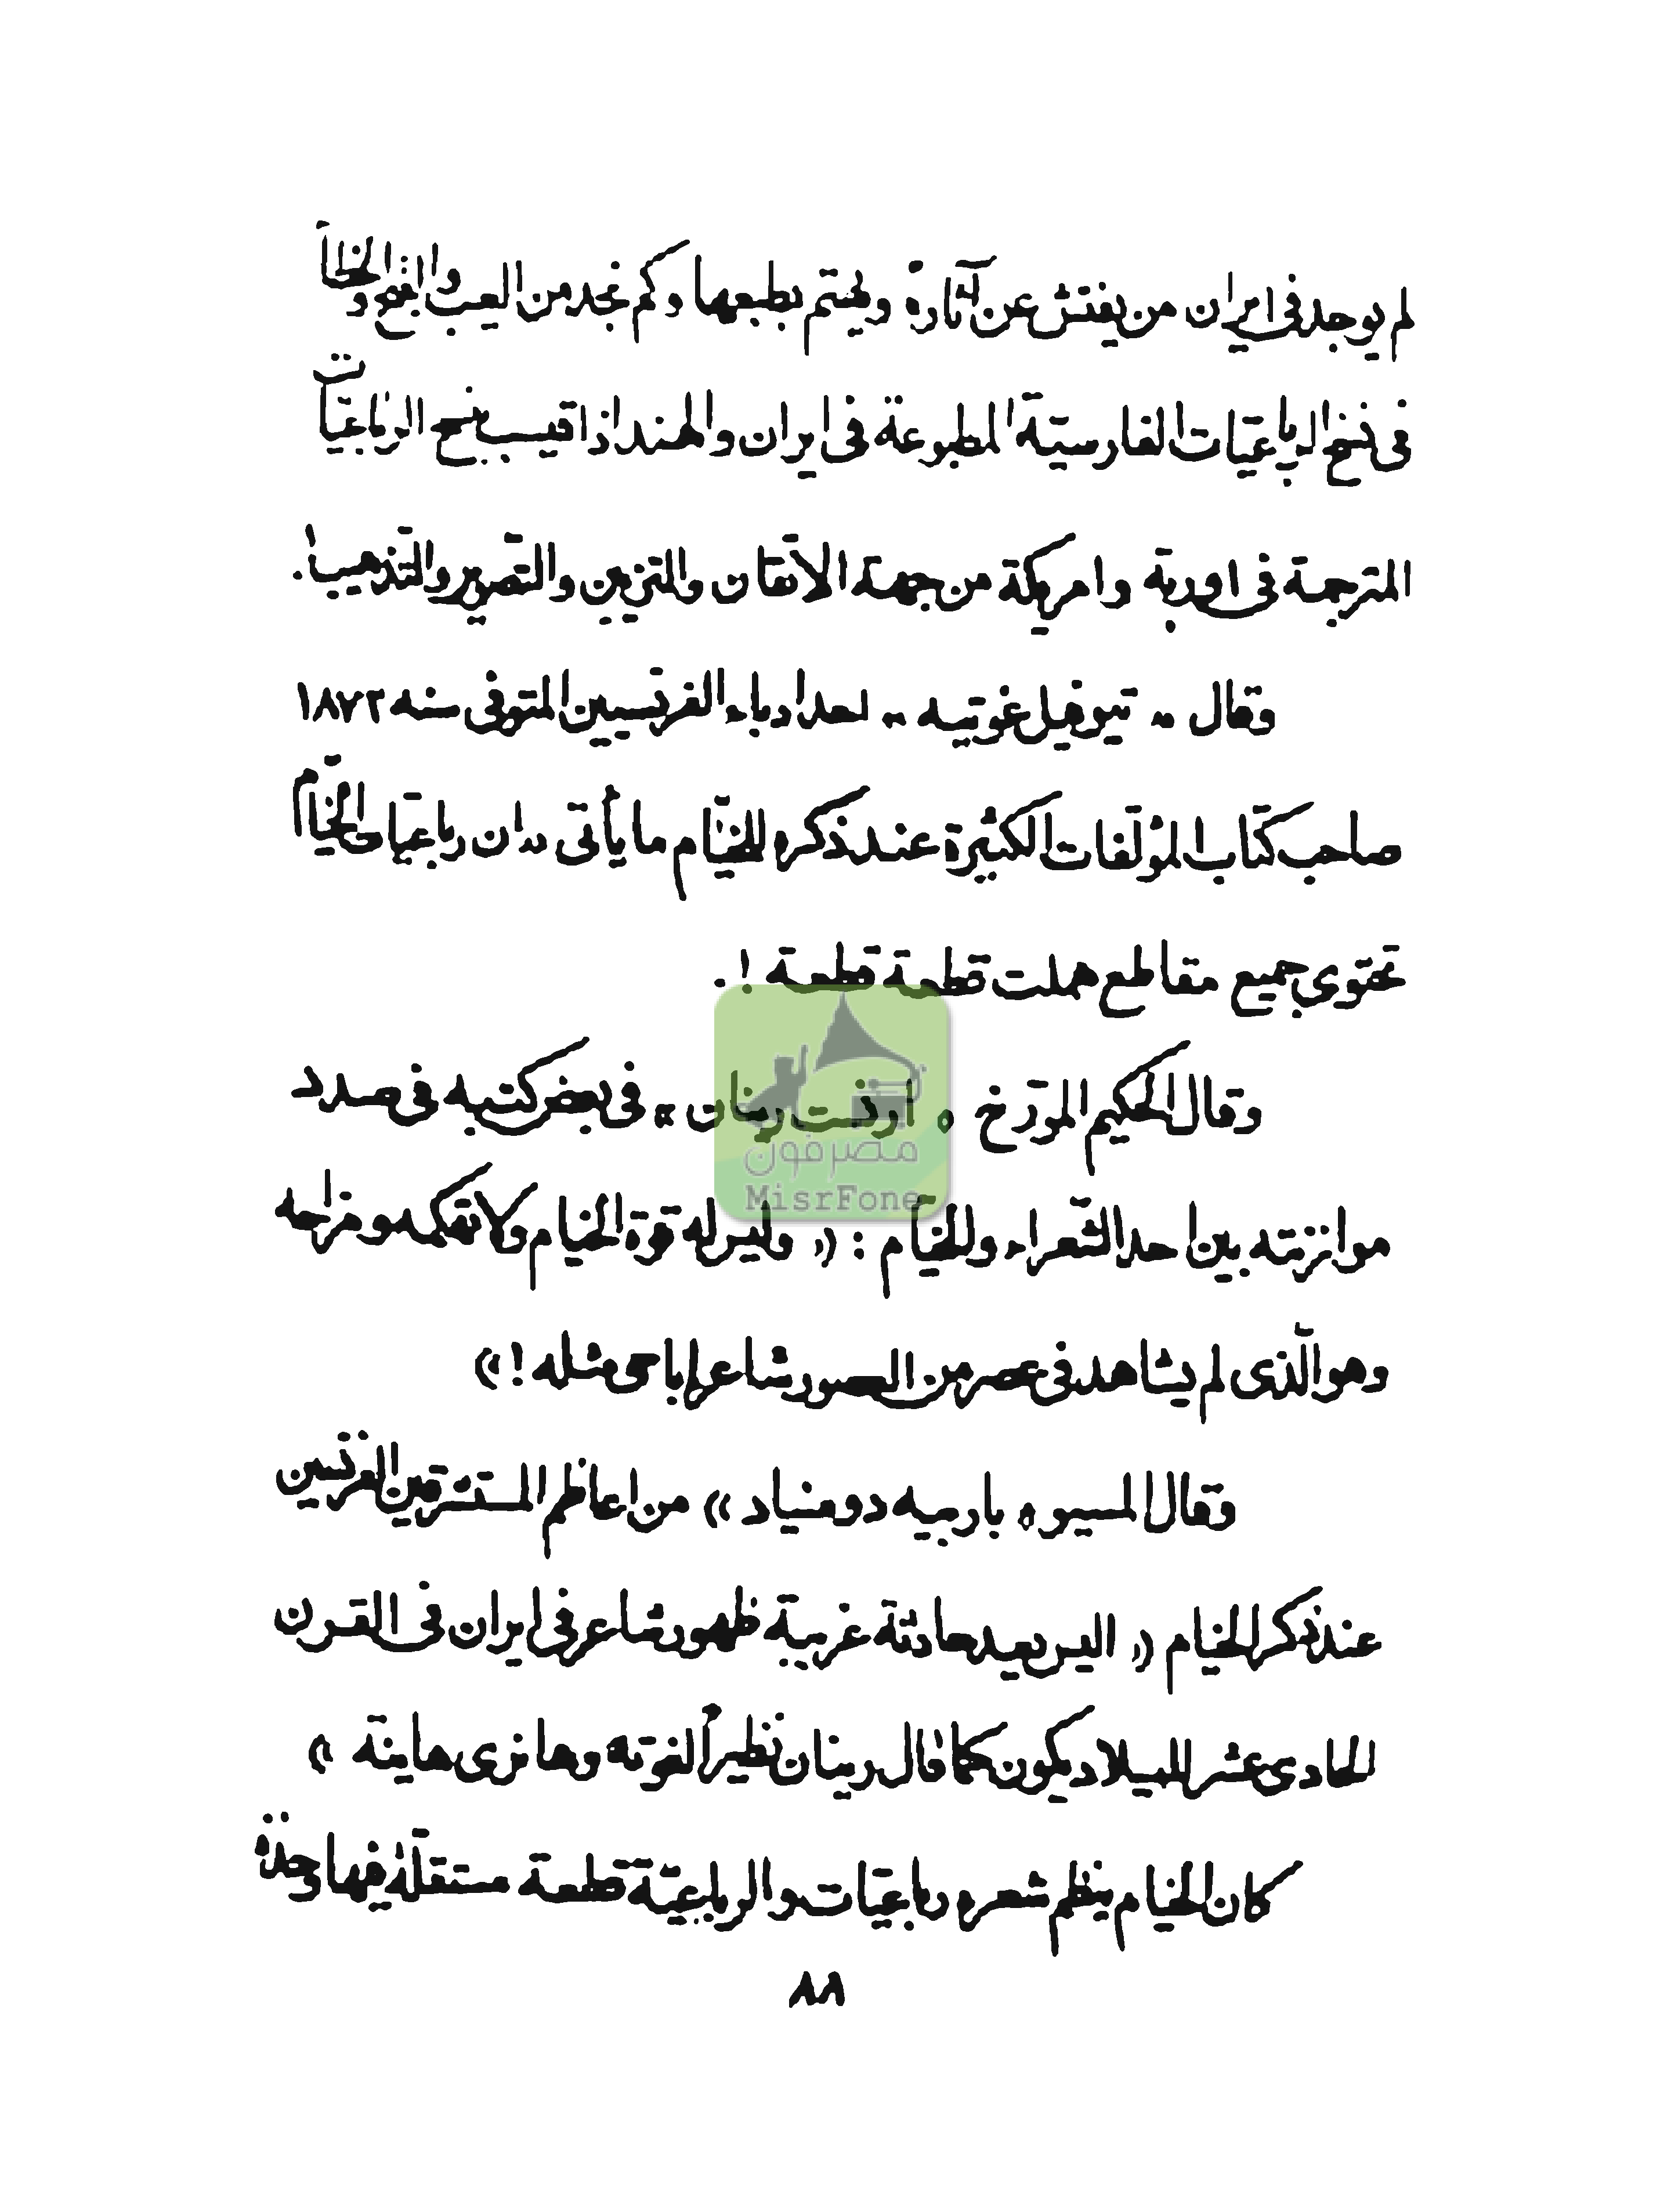 لم يوجد فى ايران من يفتش عن آثاره ويهتم بطبعها وكم نجد من العيب والقبح والخطأ
فى نسخ الرباعيّات الفارسيّة المطبوعة فى ايران والهند اذا قيست بنسخ الرباعيّات
المترجمة فى اوربة وامريكة من جهة الاتقان والتزيين والتصوير والتّذهيب!.
وقال " تيوفيل غوتييه " احد ادباء الفرنسيين المتوفى سنه ١٨٧٢
صاحب كتاب المؤلّفات الكثيرة عند ذكره للخيّام ما يأتى " ان رباعيّات الخيّام
تحتوى جميع مقاطع هملت قطعة قطعة !.
وقال الحكيم المورّخ « ارنست رينان » فى بعض كتبه فى صدد
موازنته بين احد الشّعراء والخيّام : « وليس له قوة الخيام ولا تهكمه ومزاحه
وهو الّذى لم يشاهد فى عصر من العصور شاعر إباحى مثله ! »
وقال المسيو « باربيه دو مينياد » من اعاظم المستشرقين الفرنسيين
عند ذكر الخيام « اليس بعيد حادثة غريبة ظهور شاعر فى ايران فى القرن
الحادى عشر للميلاد يكون كما قال رينان نظيراً لغوته وهانرى هاينة »
كان الخيام ينظم شعره رباعيّات والرباعيّة قطعة مستقلّة فيها وحدة
٨٨
مصرفون
MisrFone